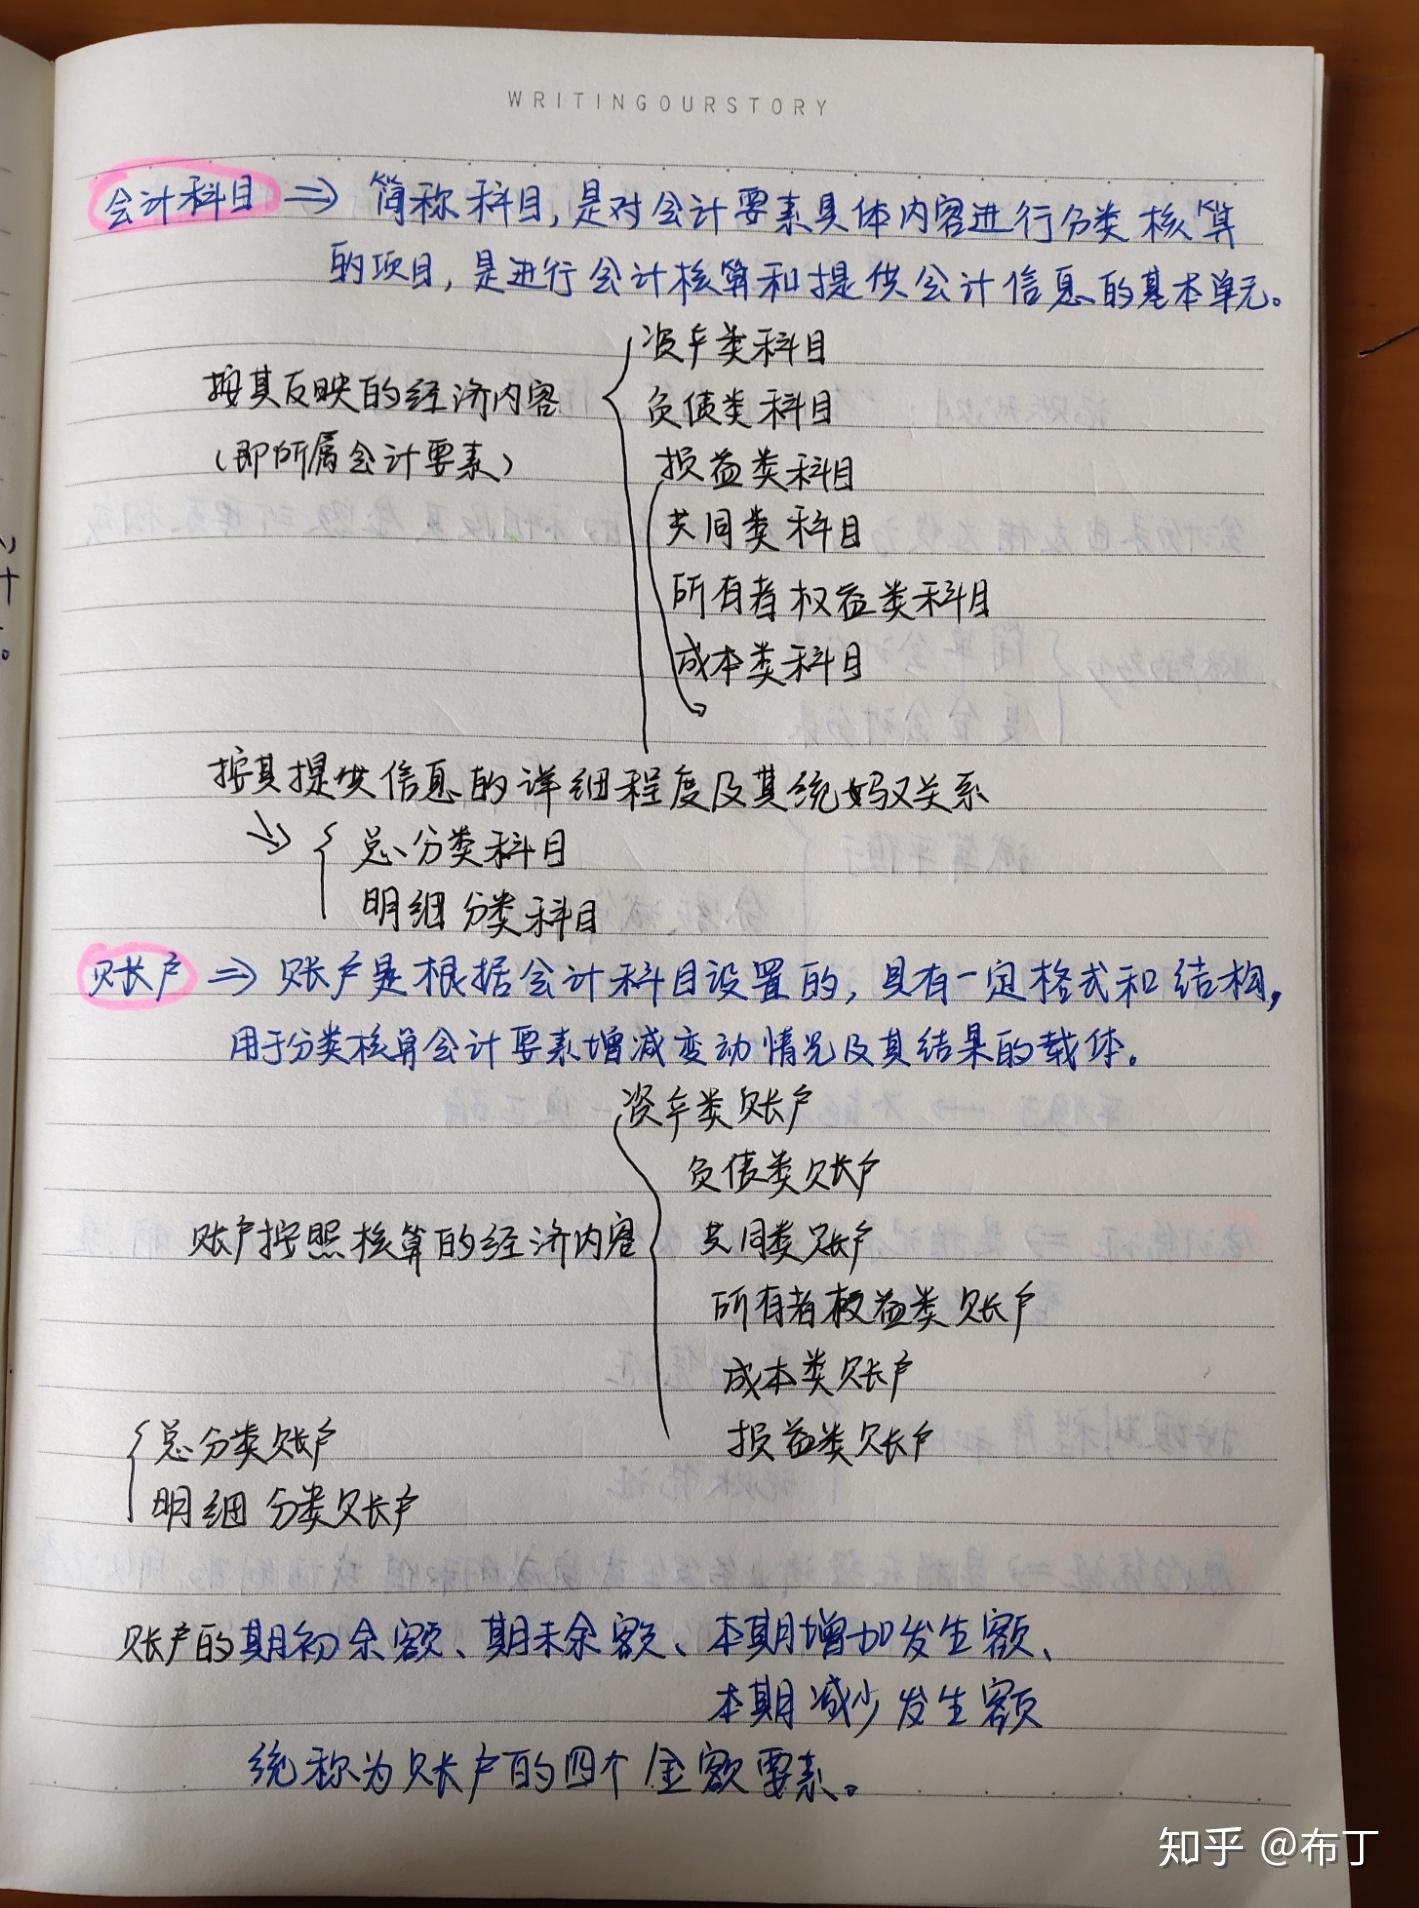 WRITINGOURSTORY
会计科目 ⇒ 简称科目,是对会计要素具体内容进行分类核算
的项目,是进行会计核算和提供会计信息的基本单元。
资产类科目
按其反映的经济内容
负债类科目
(即所属会计要素)
损益类科目
共同类科目
所有者权益类科目
成本类科目
按其提供信息的详细程度及其统驭关系
总分类科目
明细分类科目
账户 ⇒ 账户是根据会计科目设置的,具有一定格式和结构,
用于分类核算会计要素增减变动情况及其结果的载体。
资产类账户
负债类账户
账户按照核算的经济内容
共同类账户
所有者权益类账户
成本类账户
损益类账户
总分类账户
明细分类账户
账户的期初余额、期末余额、本期增加发生额、
本期减少发生额
统称为账户的四个金额要素。
知乎 @布丁